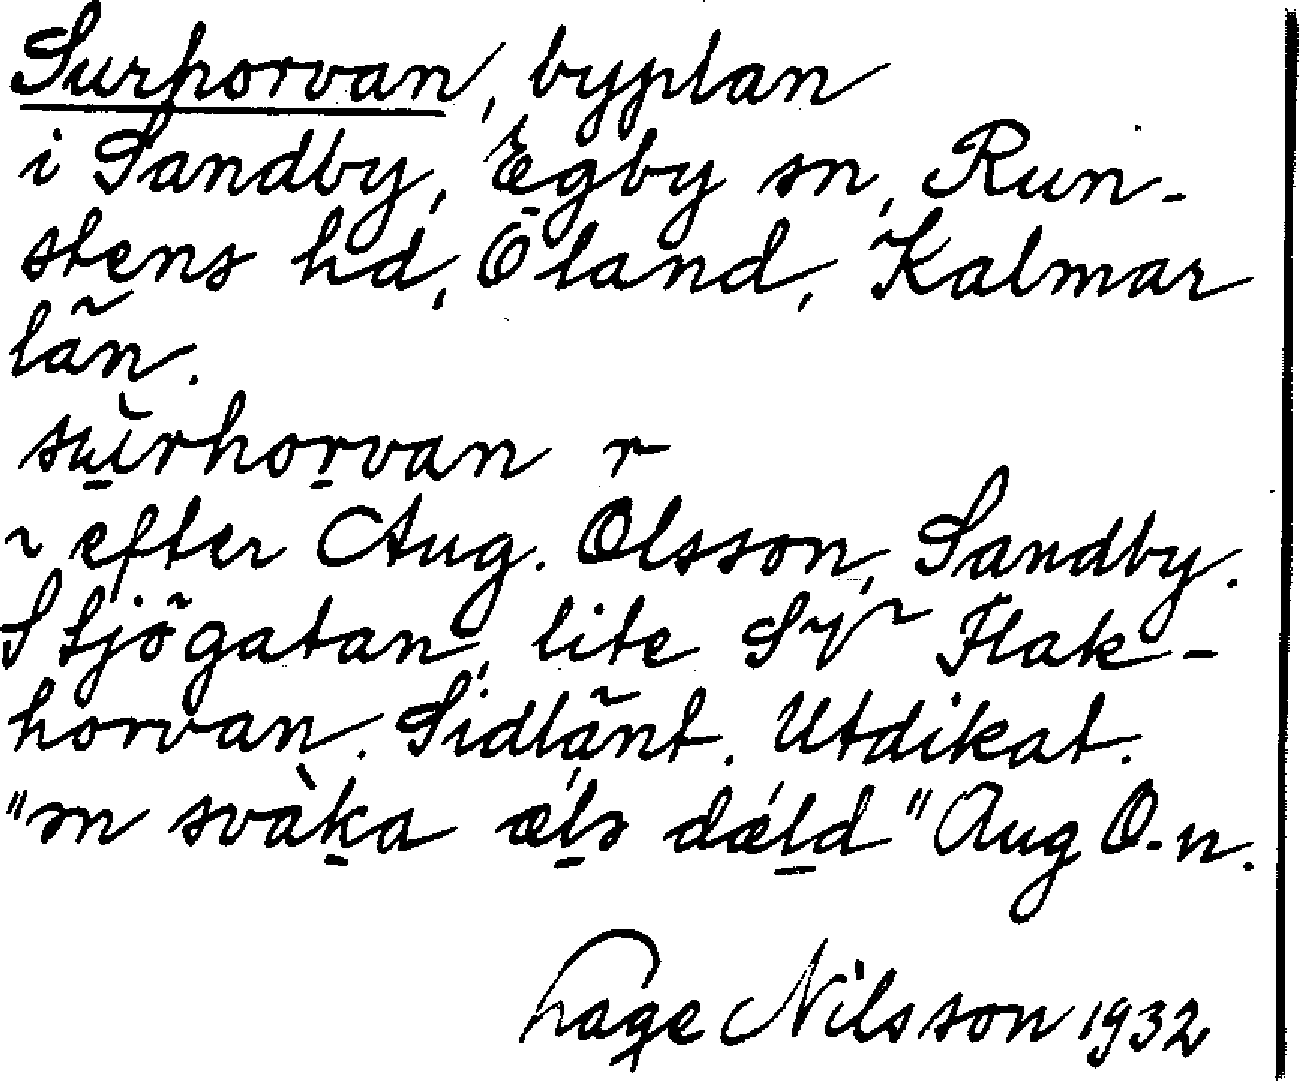 Surhorvan, byplan
i Sandby, Egby sn, Run-
stens hd, Öland, Kalmar
län.
sùrhorvan r
~ efter Aug. Olsson, Sandby.
S Sjögatan, lite SV Flak-
horvan. Sidlänt. Utdikat.
"sn svàka æls dæld" Aug O-n.
Lage Nilsson 1932